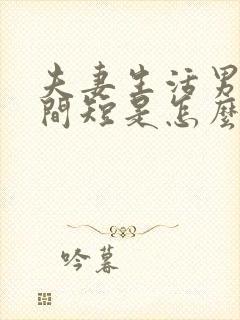 夫妻生活男
間短是怎麼
吟暮